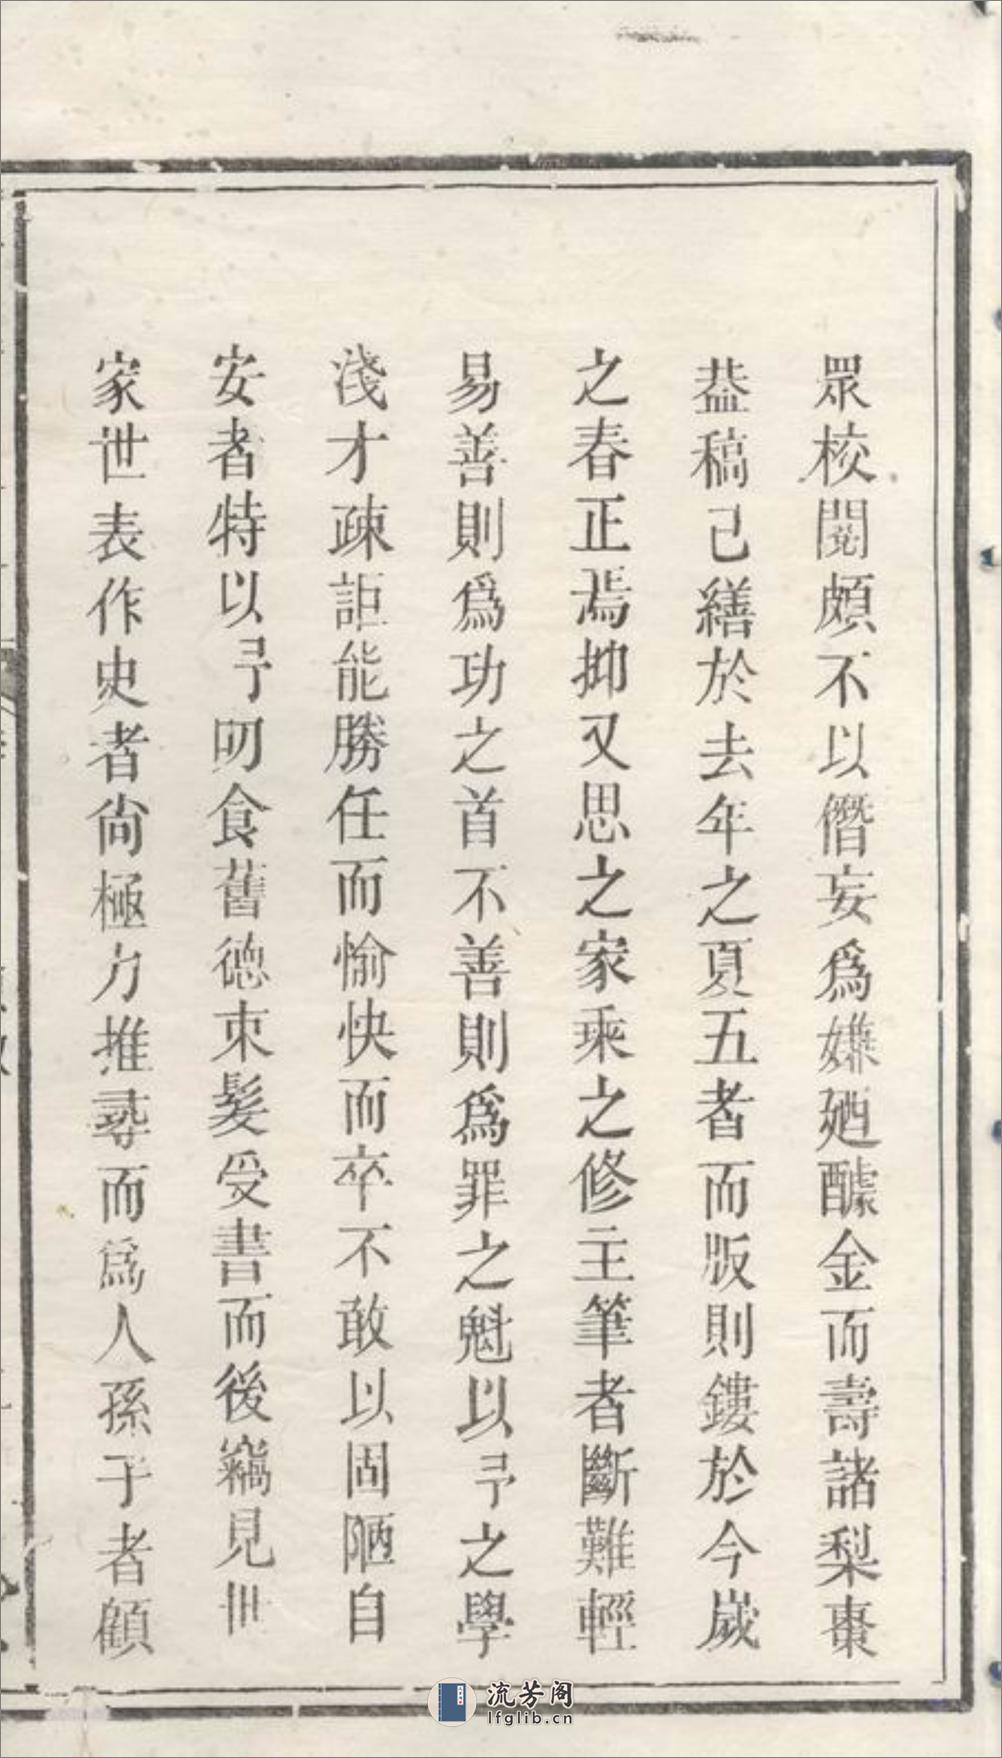 眾校閱頗不以僭妄爲嫌廼醵金而壽諸梨棗
葢稿已繕於去年之夏五者而版則鏤於今歲
之春正焉抑又思之家乘之修主筆者斷難輕
易善則爲功之首不善則爲罪之魁以予之學
淺才疎詎能勝任而愉快而卒不敢以固陋自
安者特以予叨食舊德朿髮受書而後竊見世
家世表作史者尙極力推尋而爲人孫子者顧
流芳阁
lfglib.cn